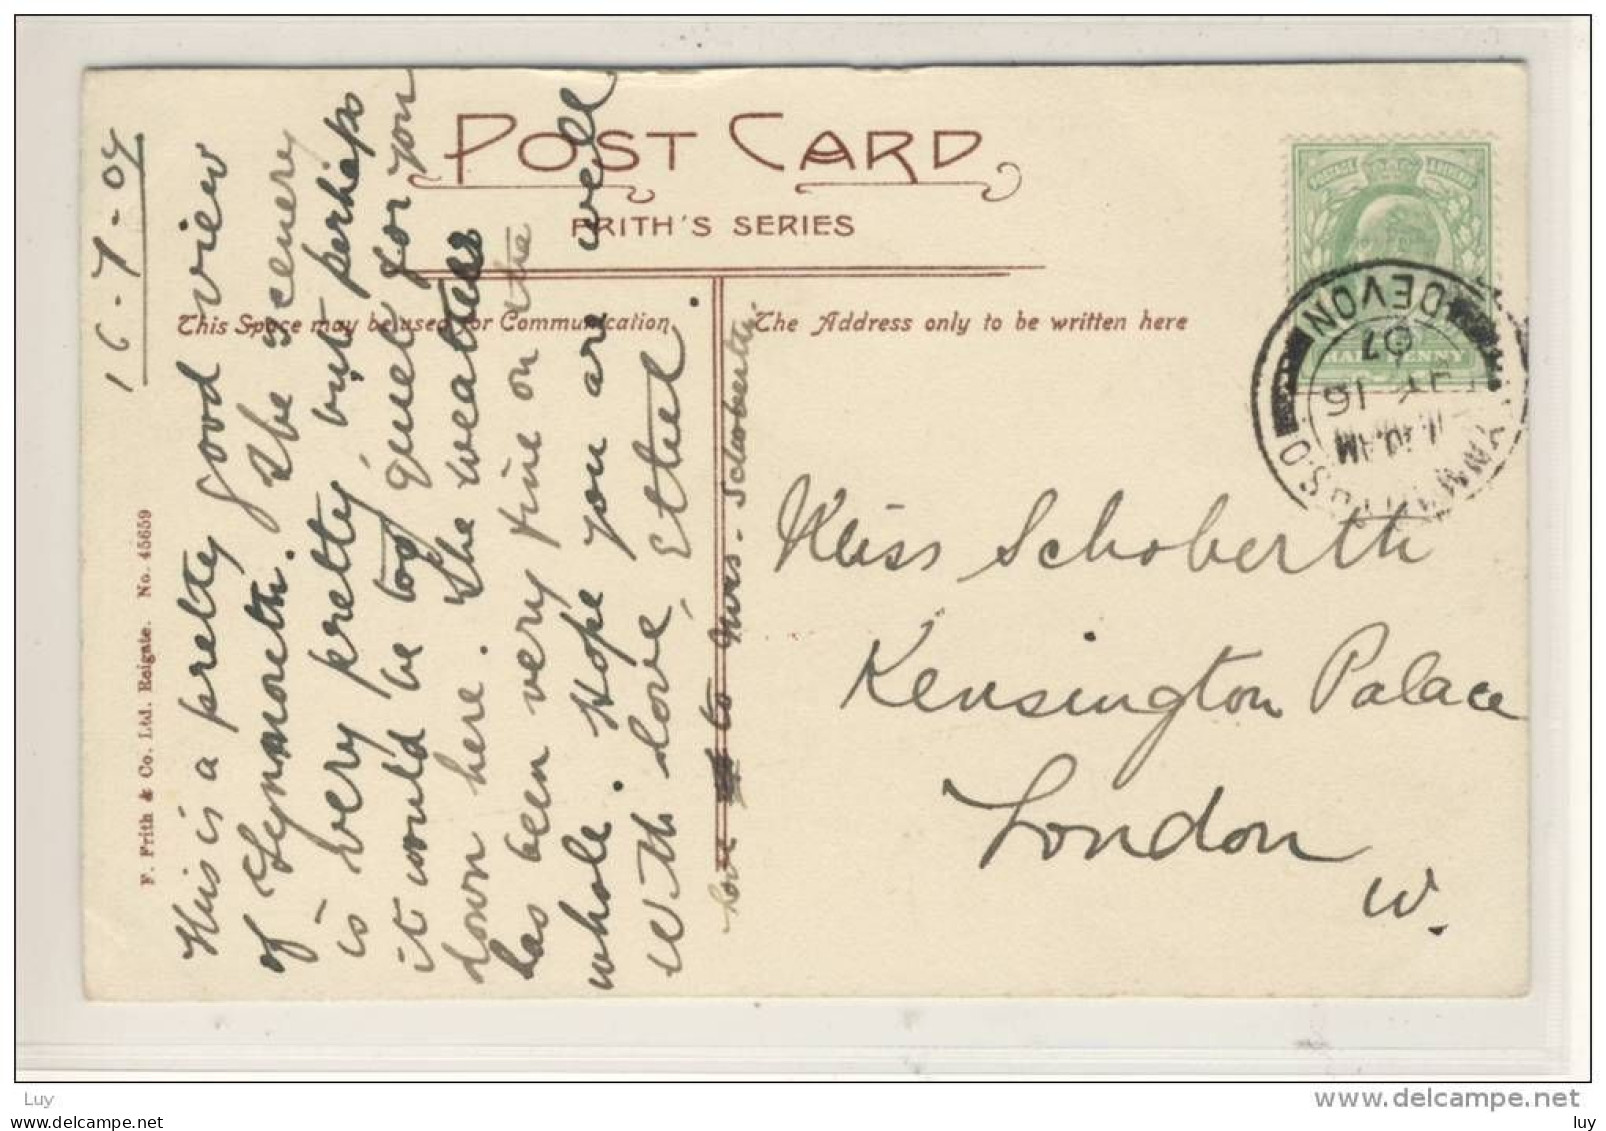 16-7-07
This is a pretty good view
of Lynmouth. The scenery
is very pretty, but perhaps
it would be too quiet for you
down here. The weather
has been very fine on the
whole. Hope you are well
With love, Ethel.
love to Mrs. Schoberth
POST CARD
FRITH'S SERIES
This Space may be used for Communication
The Address only to be written here
F. Frith & Co. Ltd. Reigate. No. 45659
Miss Schoberth
Kensington Palace
London
W.
POSTAGE REVENUE
HALFPENNY
LYNMOUTH S.O.
DEVON
11.40 AM
JY 16
07
Luy
www.delcampe.net
www.delcampe.net
luy